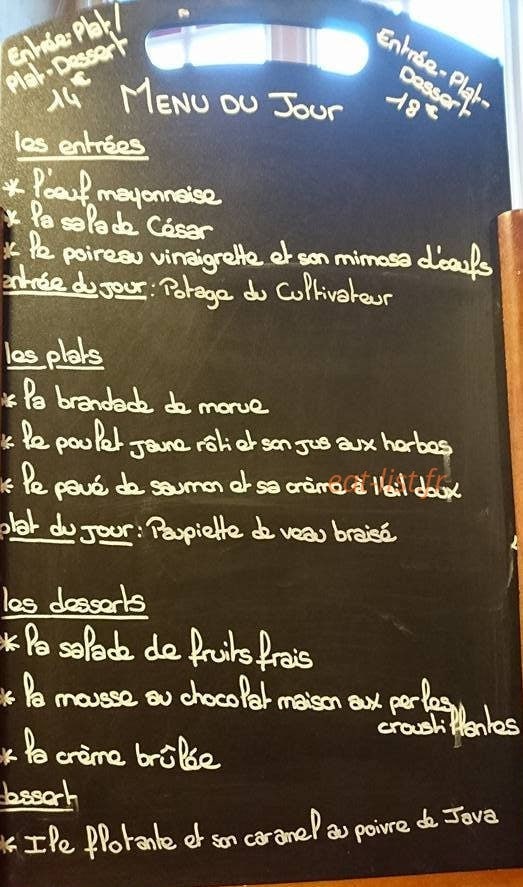 Entrée-Plat/
Plat-Dessert
14€
Entrée-Plat-
Dessert
18€
MENU DU JOUR
les entrées
* l'oeuf mayonnaise
* la salade César
* le poireau vinaigrette et son mimosa d'oeufs
entrée du jour : Potage du Cultivateur
les plats
* la brandade de morue
* le poulet jaune rôti et son jus aux herbes
* le pavé de saumon et sa crème à l'ail doux
eat-list.fr
plat du jour : Paupiette de veau braisé
les desserts
* la salade de fruits frais
* la mousse au chocolat maison aux perles
croustillantes
* la crème brûlée
dessert
* Ile flotante et son caramel au poivre de Java